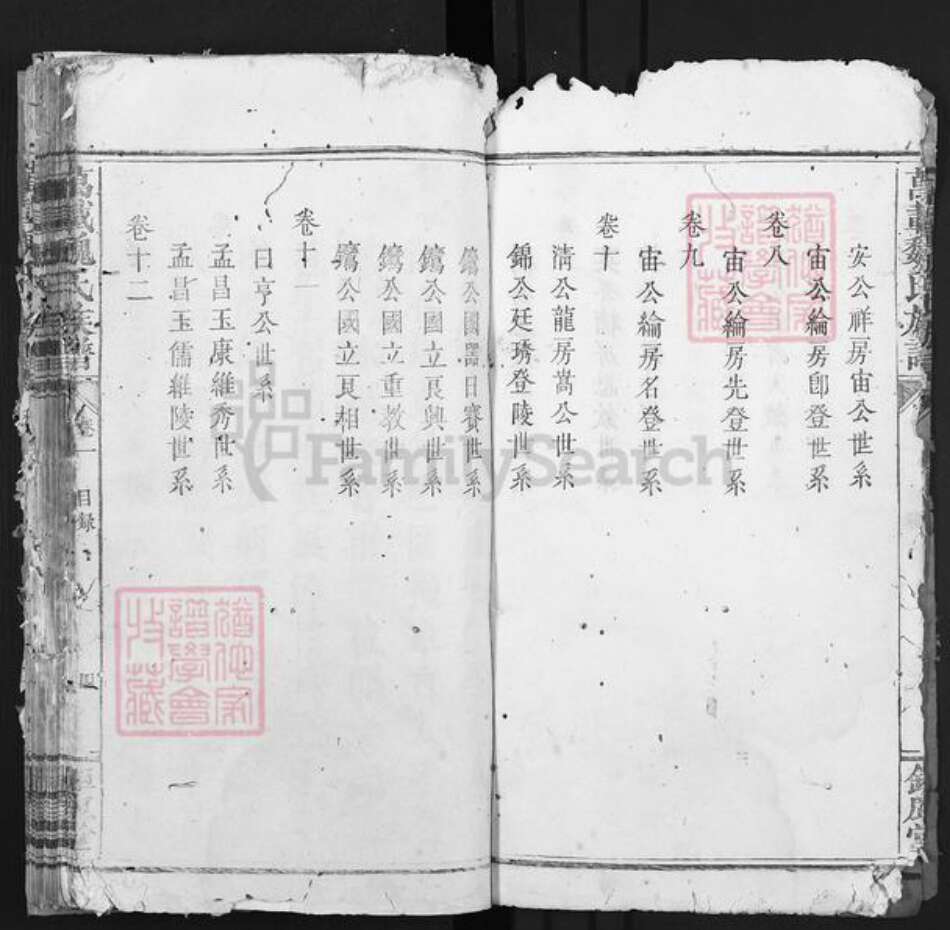 安公祥房宙公世系
宙公綸房卽登世系
卷八
宙公綸房先登世系
卷九
宙公綸房名登世系
卷十
清公龍房嵩公世系
錦公廷琇登陵世系
公國器日賽世系
公國立良興世系
公國立重教世系
公國立良相世系
卷十一
曰亨公世系
孟昌玉康維秀世系
孟昌玉儒維陵世系
卷十二
萬載魏氏族譜
卷一
目錄
四
萬載魏氏族譜
猶他家譜學會收藏
猶他家譜學會收藏
FamilySearch